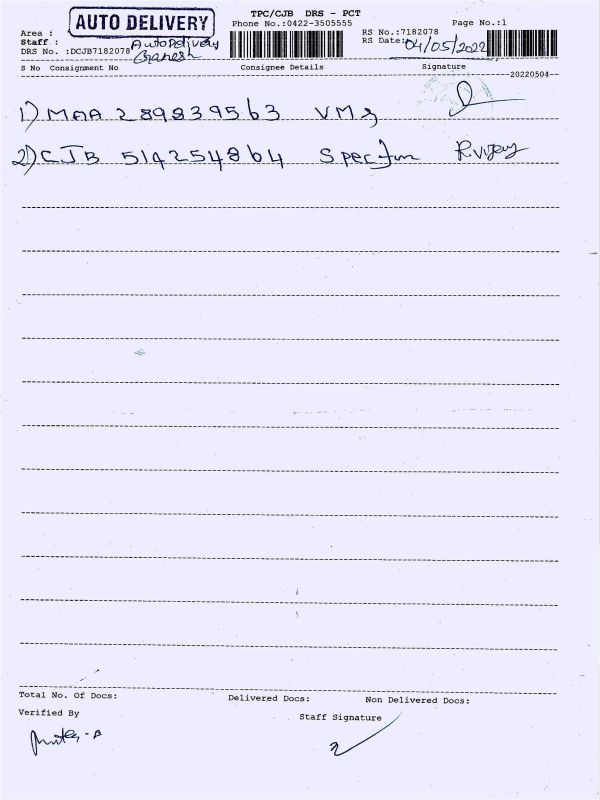 AUTO DELIVERY
TPC/CJB DRS - PCT
Phone No.:0422-3505555
Page No.:1
Area :
Staff : Auto Delivery
Ganesh
RS No.:7182078
RS Date: 04/05/2022
DRS No. :DCJB7182078
S No Consignment No Consignee Details Signature
20220504
1) MAA 289839563 VMS
2) CJB 514254864 Spectrum R. Vijay
Total No. Of Docs: Delivered Docs: Non Delivered Docs:
Verified By
Staff Signature